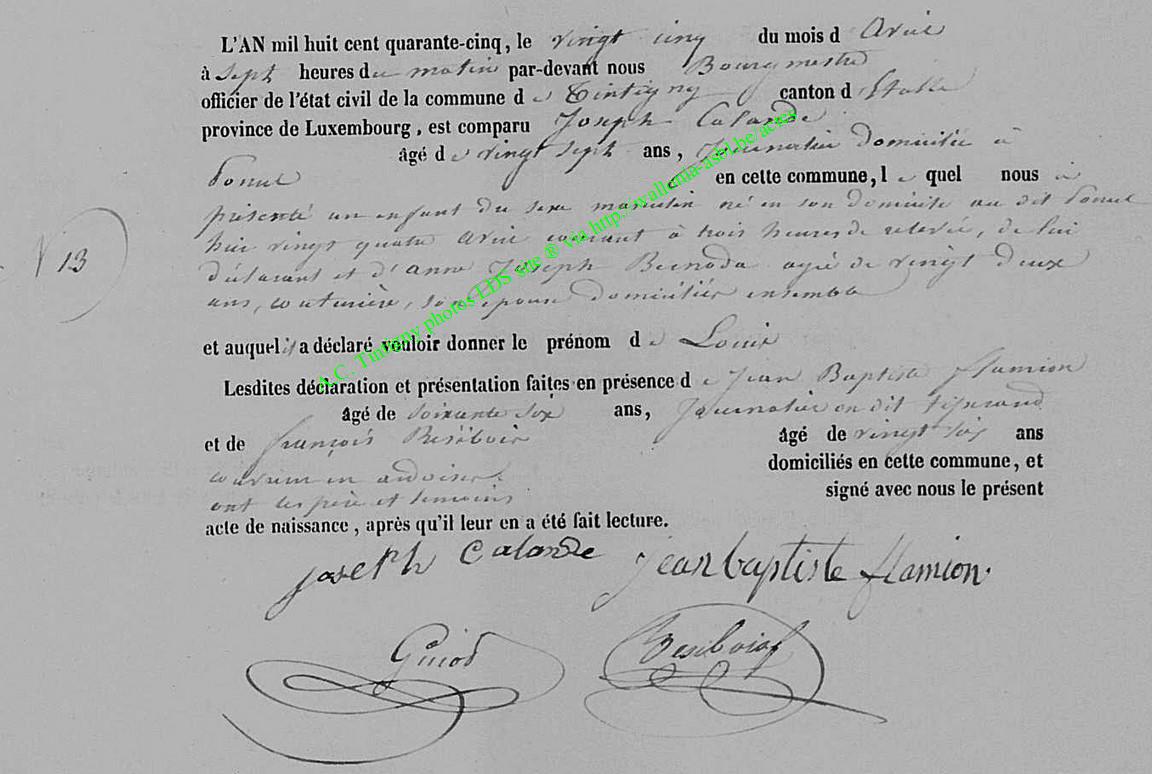 L'AN mil huit cent quarante-cinq, le vingt cinq du mois d'Avril
à sept heures du matin par-devant nous Bourgmestre
officier de l'état civil de la commune de Tintigny canton d'Etalle
province de Luxembourg, est comparu Joseph Calande
âgé de vingt sept ans, Journalier domicilié à
en cette commune, lequel nous a
N 13
présenté un enfant du sexe masculin né en son domicile au dit
hier vingt quatre Avril courant à trois heures de relevée, de lui
déclarant et d'anne Joseph agée de vingt deux
ans, couturière, son épouse domiciliés ensemble
et auquel il a déclaré vouloir donner le prénom de Louis
Lesdites déclaration et présentation faites en présence de Jean Baptiste flamion
âgé de soixante ans, Journalier
et de françois âgé de vingt six ans
domiciliés en cette commune, et
ont les père et temoins signé avec nous le présent
acte de naissance, après qu'il leur en a été fait lecture.
joseph Calande jean baptiste flamion
A.C. Tintigny photos LDS site ® via http://wallonia-asbl.be/actes